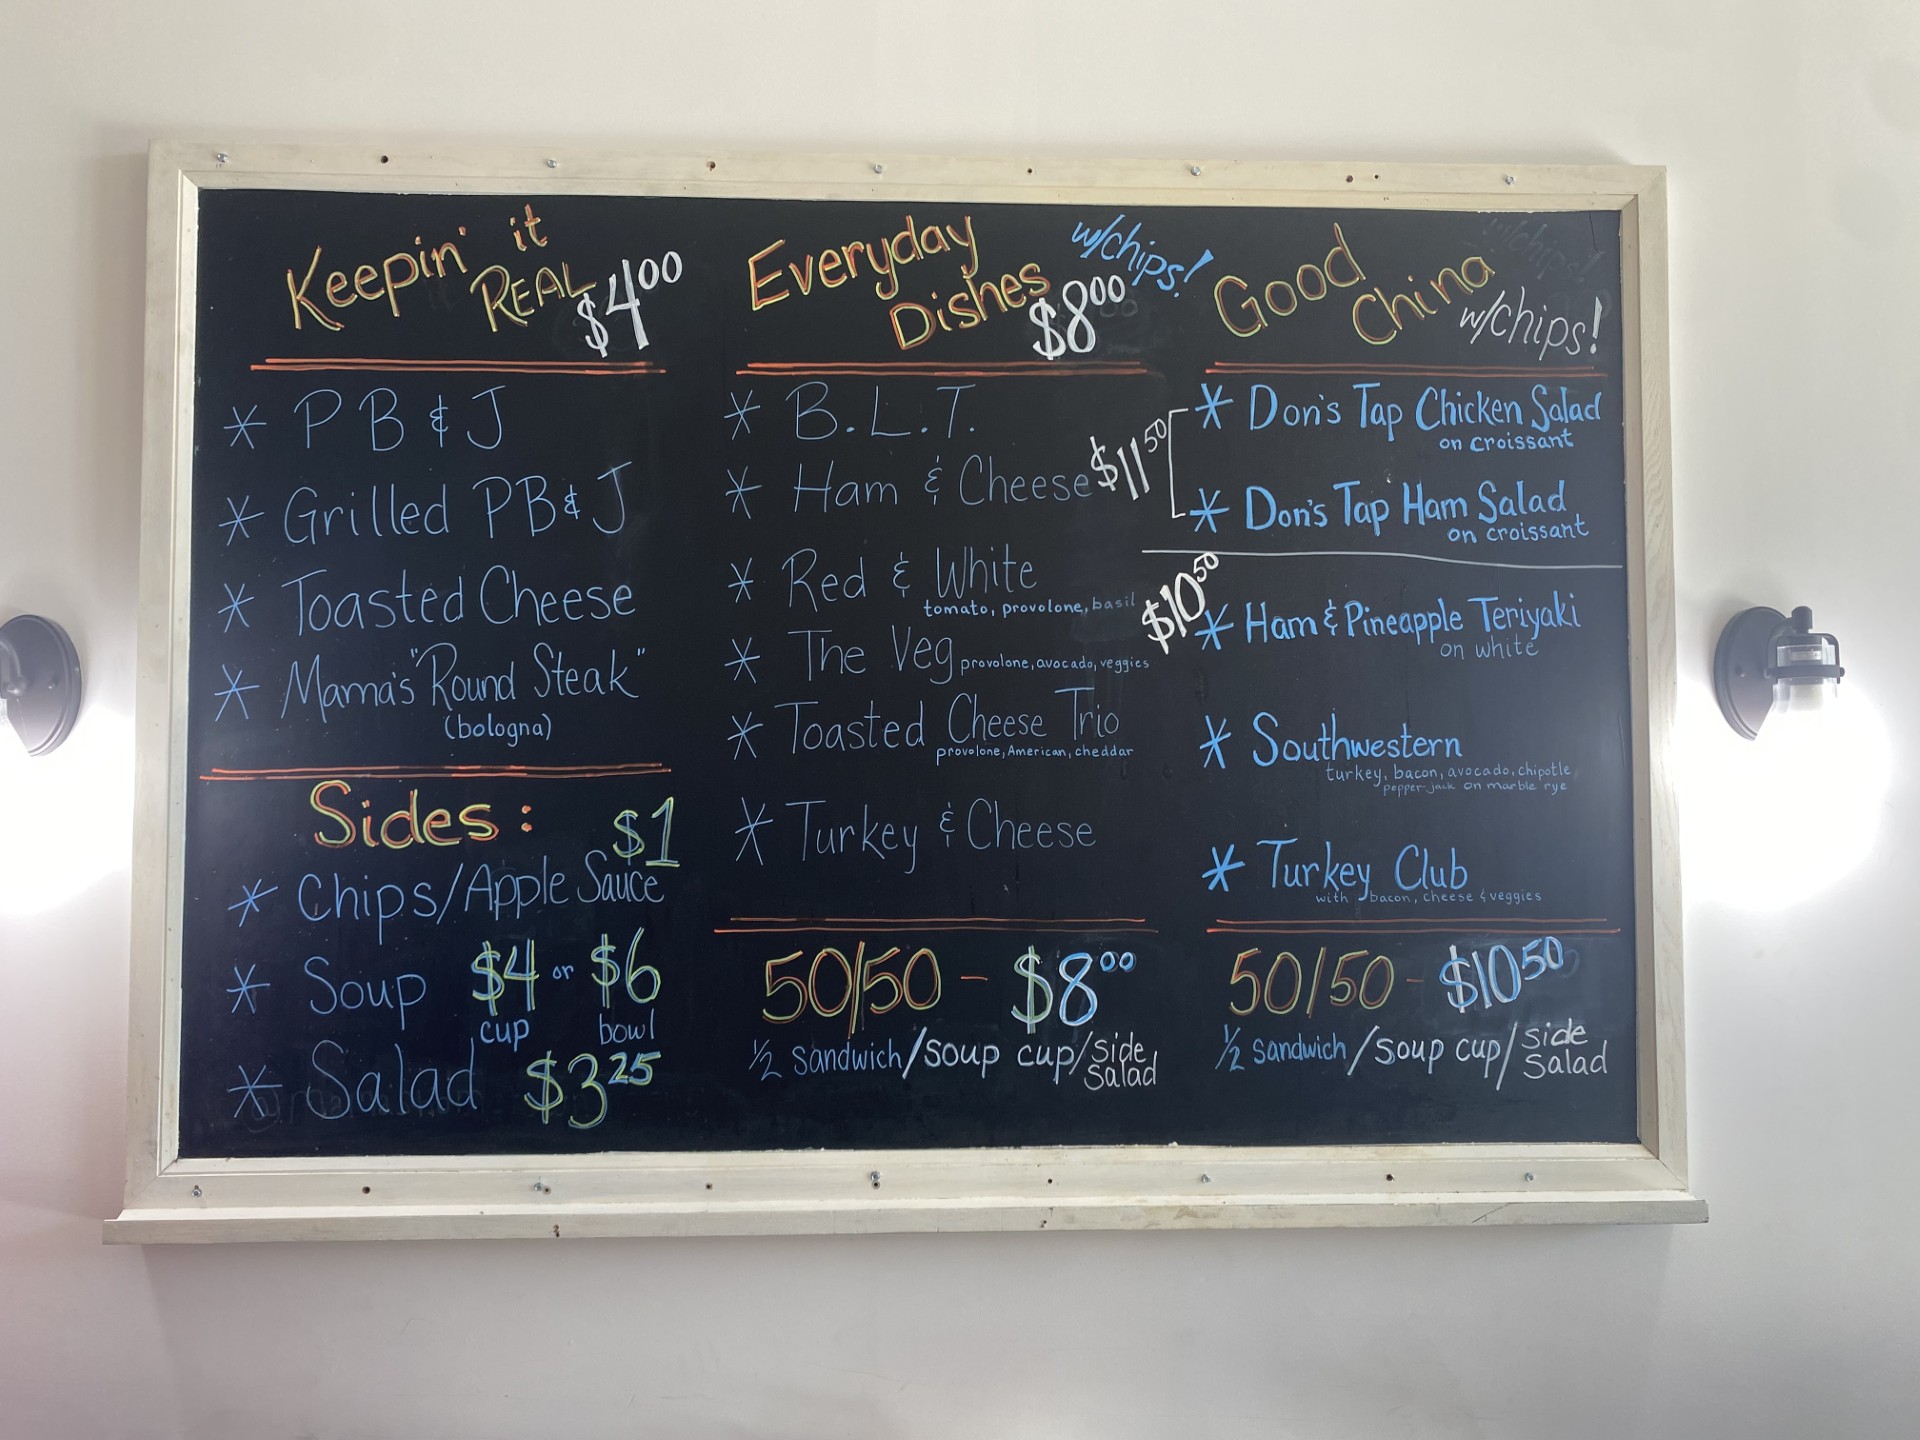 Keepin' it
REAL $4.00
* PB & J
* Grilled PB & J
* Toasted Cheese
* Mama's "Round Steak"
(bologna)
Sides: $1
* Chips/Apple Sauce
* Soup $4 or $6
cup bowl
* Salad $3.25
Everyday w/chips!
Dishes $8.00
* B.L.T.
* Ham & Cheese
* Red & White
tomato, provolone, basil
* The Veg provolone, avocado, veggies
* Toasted Cheese Trio
provolone, American, cheddar
* Turkey & Cheese
50/50 - $8.00
1/2 sandwich/soup cup/side
salad
Good
China w/chips!
$11.50
* Don's Tap Chicken Salad
on croissant
* Don's Tap Ham Salad
on croissant
$10.50
* Ham & Pineapple Teriyaki
on white
* Southwestern
turkey, bacon, avocado, chipotle
pepper jack on marble rye
* Turkey Club
with bacon, cheese & veggies
50/50 - $10.50
1/2 sandwich/soup cup/side
salad